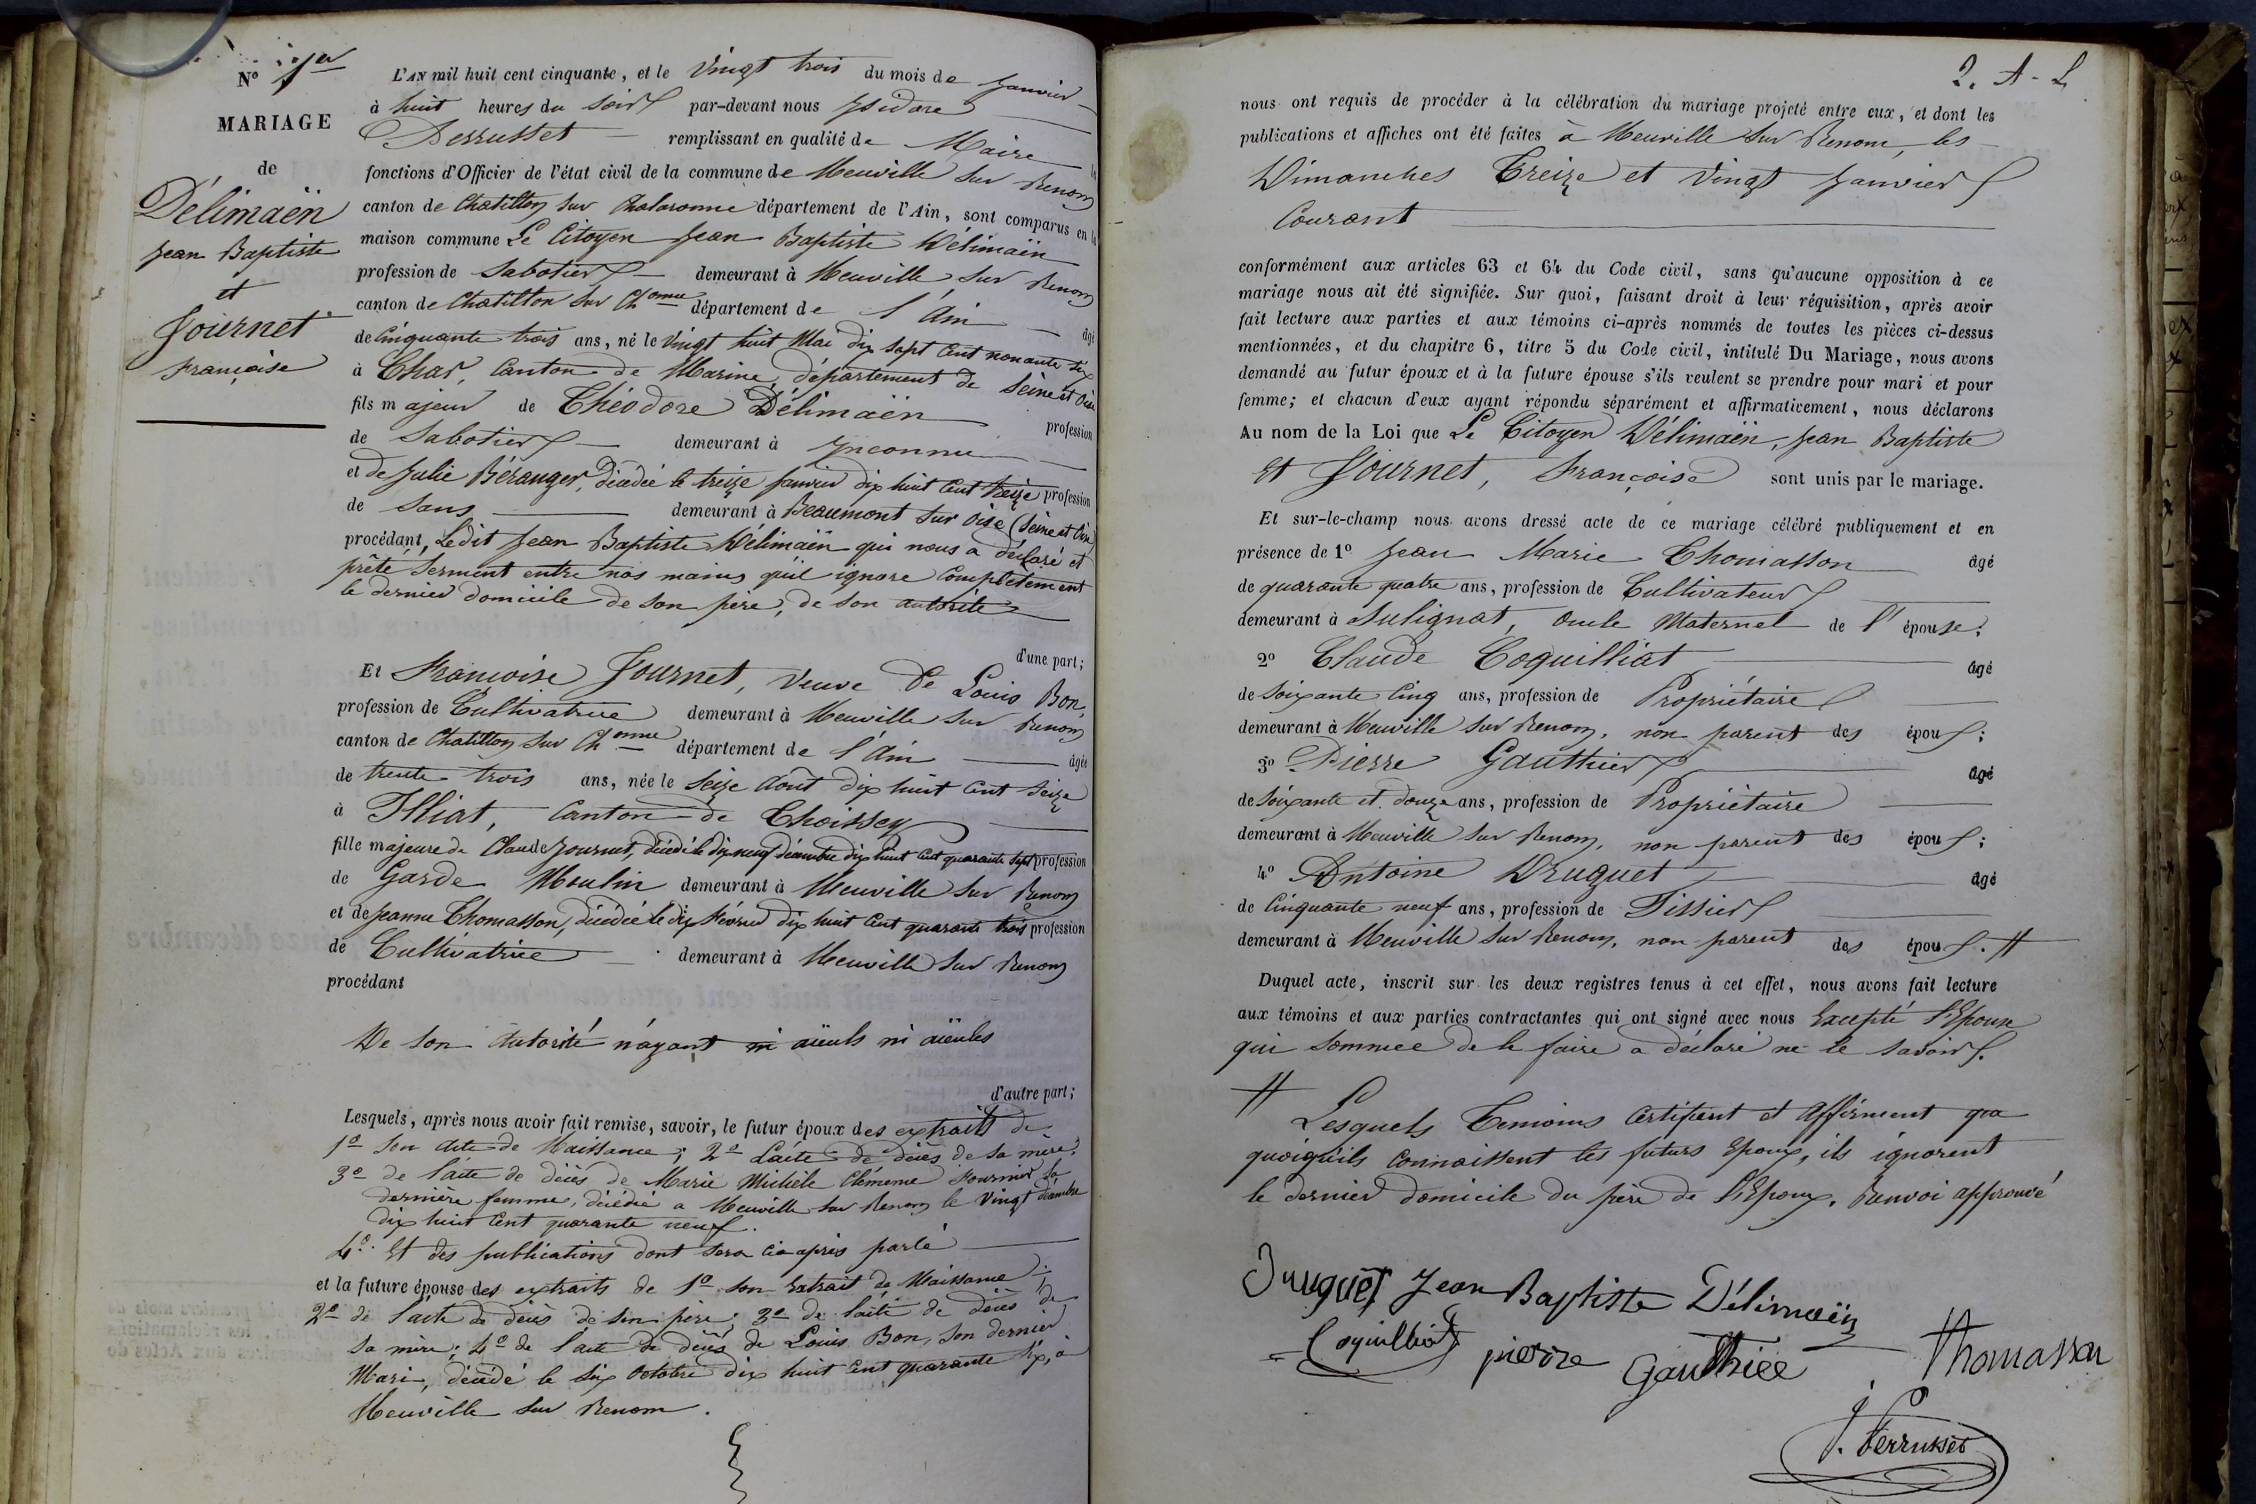 N° 1er
MARIAGE
de
Délimaën
Jean Baptiste
et
Journet
françoise
L'AN mil huit cent cinquante, et le Vingt trois du mois de Janvier
à huit heures du soir par-devant nous Isidore
Perrusset remplissant en qualité de Maire
fonctions d'Officier de l'état civil de la commune de Neuville sur Renom
canton de Chatillon sur Chalaronne département de l'Ain, sont comparus en la
maison commune Le Citoyen Jean Baptiste Délimaën
profession de Sabotier demeurant à Neuville sur Renom
canton de Chatillon sur Chonne département de l'Ain âgé
de Cinquante trois ans, né le Vingt huit Mai dix sept Cent nonante six
à Char, Canton de Marine, département de Seine et Oise
fils majeur de Théodore Délimaën profession
de Sabotier demeurant à Inconnu
et de Julie Béranger, décédée le treize Janvier dix huit Cent treize profession
de Sans demeurant à Beaumont sur Oise (Seine et Oise)
procédant, Ledit Jean Baptiste Délimaën qui nous a déclaré et
prêté serment entre nos mains qu'il ignore Complètement
le dernier domicile de son père, de son autorité
d'une part;
Et Françoise Journet, Veuve De Louis Bon,
profession de Cultivatrice demeurant à Neuville sur Renom
canton de Chatillon sur Chonne département de l'Ain âgée
de trente trois ans, née le Seize Août dix huit Cent Seize
à Illiat, Canton de Thoissey
fille majeure de Claude Journet, décédé le dix neuf décembre dix huit Cent quarante sept profession
de Garde Moulin demeurant à Neuville sur Renom
et de Jeanne Thomasson, décédée le dix Février dix huit Cent quarante trois profession
de Cultivatrice demeurant à Neuville sur Renom
procédant
De son Autorité n'ayant ni aïeuls ni aïeules
d'autre part;
Lesquels, après nous avoir fait remise, savoir, le futur époux des extraits de
1° son acte de Naissance; 2° L'acte de décès de sa mère;
3° de l'acte de décès de Marie Michèle Clémence Fournier sa
dernière femme, décédée a Neuville sur Renom le Vingt décembre
dix huit Cent quarante neuf.
4° Et des publications dont sera ci-après parlé
et la future épouse des extraits de 1° son Extrait de Naissance;
2° de l'acte de décès de son père; 3° de l'acte de décès de
sa mère; 4° de l'acte de décès de Louis Bon, son dernier
Mari, décédé le six Octobre dix huit Cent quarante six, à
Neuville sur Renom.
2. A-L
nous ont requis de procéder à la célébration du mariage projeté entre eux, et dont les
publications et affiches ont été faites à Neuville sur Renom, les
Dimanches Treize et Vingt Janvier
Courant
conformément aux articles 63 et 64 du Code civil, sans qu'aucune opposition à ce
mariage nous ait été signifiée. Sur quoi, faisant droit à leur réquisition, après avoir
fait lecture aux parties et aux témoins ci-après nommés de toutes les pièces ci-dessus
mentionnées, et du chapitre 6, titre 5 du Code civil, intitulé Du Mariage, nous avons
demandé au futur époux et à la future épouse s'ils veulent se prendre pour mari et pour
femme; et chacun d'eux ayant répondu séparément et affirmativement, nous déclarons
Au nom de la Loi que Le Citoyen Délimaën, Jean Baptiste
Et Journet, Françoise sont unis par le mariage.
Et sur-le-champ nous avons dressé acte de ce mariage célébré publiquement et en
présence de 1° Jean Marie Thomasson âgé
de quarante quatre ans, profession de Cultivateur
demeurant à Sulignat, Oncle Maternel de l'épouse;
2° Claude Coquilliat âgé
de soixante Cinq ans, profession de Propriétaire
demeurant à Neuville sur Renom, non parent des époux;
3° Pierre Gauthier âgé
de soixante et douze ans, profession de Propriétaire
demeurant à Neuville sur Renom, non parent des époux;
4° Antoine Druguet âgé
de Cinquante neuf ans, profession de Tissier
demeurant à Neuville sur Renom, non parent des époux. #
Duquel acte, inscrit sur les deux registres tenus à cet effet, nous avons fait lecture
aux témoins et aux parties contractantes qui ont signé avec nous Excepté l'Epouse
qui sommée de le faire a déclaré ne le savoir.
# Lesquels Temoins Certifient et Affirment que
quoiqu'ils Connaissent les futurs Epoux, ils ignorent
le dernier domicile du père de l'Epoux. Renvoi approuvé
Druguet Jean Baptiste Délimaën
Coquilliat pierre Gauthier Thomasson
J. Perrusset